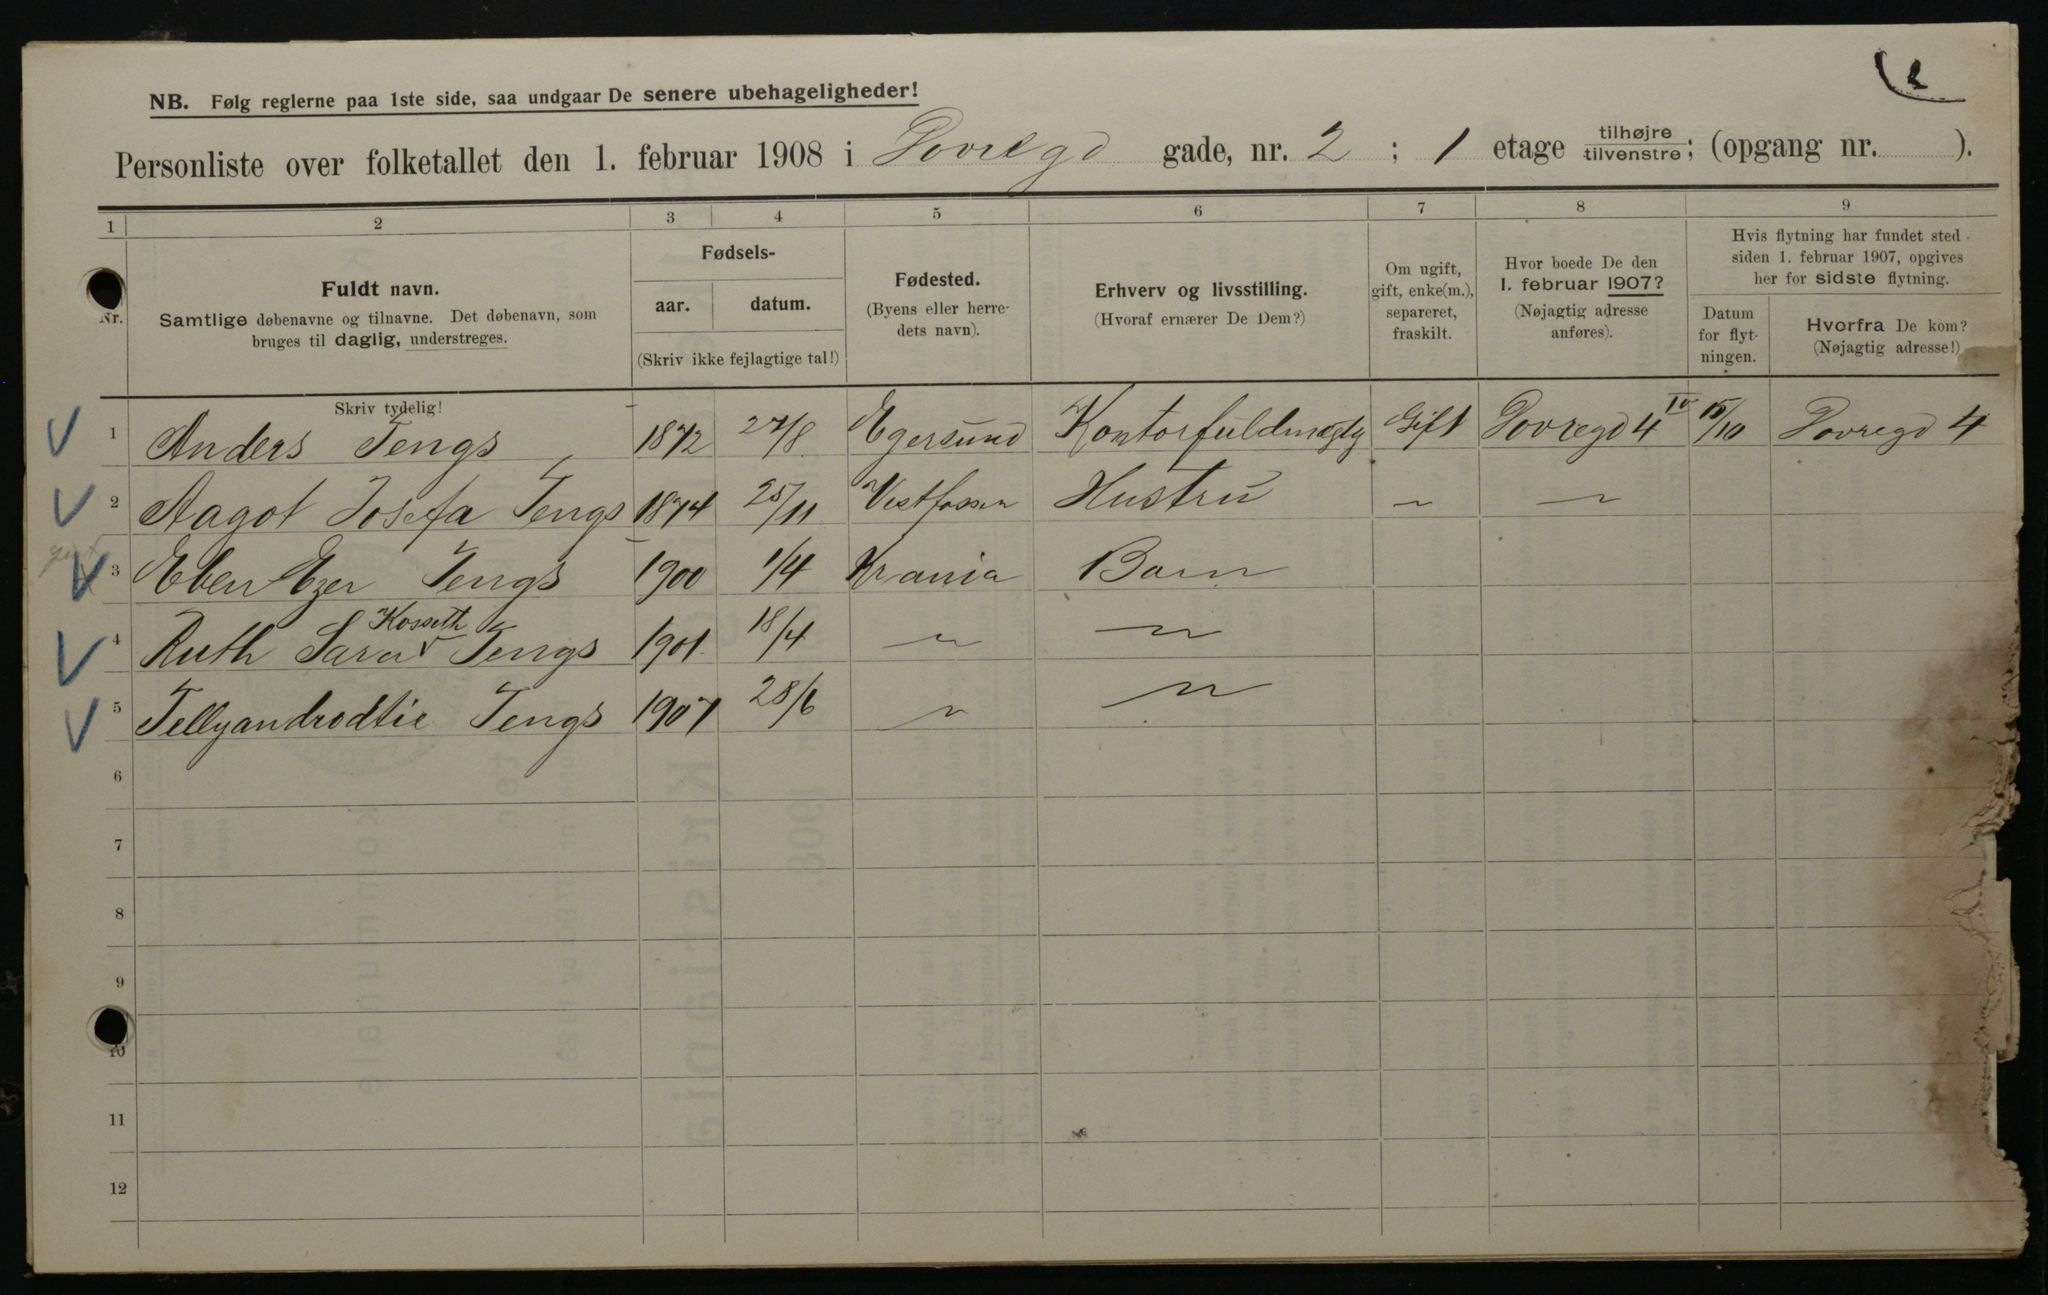 NB. Følg reglerne paa 1ste side, saa undgaar De senere ubehageligheder!
Personliste over folketallet den 1. februar 1908 i Dovregd gade, nr. 2 ; 1 etage tilhøjre tilvenstre; (opgang nr. ).
1 2 3 4 5 6 7 8 9
Nr.
Fuldt navn.
Samtlige døbenavne og tilnavne. Det døbenavn, som
bruges til daglig, understreges.
Skriv tydelig!
Fødsels-
aar. datum.
(Skriv ikke fejlagtige tal!)
Fødested.
(Byens eller herre-
dets navn).
Erhverv og livsstilling.
(Hvoraf ernærer De Dem?)
Om ugift,
gift, enke(m.),
separeret,
fraskilt.
Hvor boede De den
1. februar 1907?
(Nøjagtig adresse
anføres).
Hvis flytning har fundet sted
siden 1. februar 1907, opgives
her for sidste flytning.
Datum
for flyt-
ningen.
Hvorfra De kom?
(Nøjagtig adresse!)
1 Anders Tengs 1872 27/8 Egersund Kontorfuldmægtig Gift Dovregd 4 IV 15/10 Dovregd 4
2 Aagot Josefa Tengs 1874 25/11 Vestfossen Hustru " "
3 Eben Ezer Tengs 1900 1/4 Krania Barn
4 Ruth Sara Kosseth Tengs 1901 18/4 " "
5 Tellyandrodtie Tengs 1907 28/6 " "
6
7
8
9
10
11
12